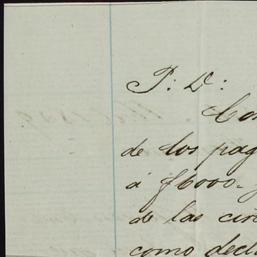 P: D:
Con
de los pag
á $6000.
de las cir
como decl